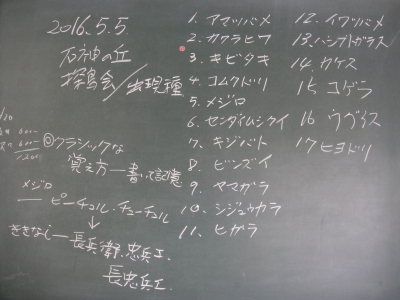 2016.5.5.
石神の丘
探鳥会/出現種
◎クラシックな
覚え方―書いて記憶
メジロ
― ピーチュル・チューチュル
ききなし―長兵衛、忠兵エ
長忠兵エ
1. アマツバメ
2. カワラヒワ
3. キビタキ
4. コムクドリ
5. メジロ
6. センダイムシクイ
7. キジバト
8. ビンズイ
9. ヤマガラ
10. シジュウカラ
11. ヒガラ
12. イワツバメ
13. ハシブトガラス
14. カケス
15. コゲラ
16 ウグイス
17 ヒヨドリ